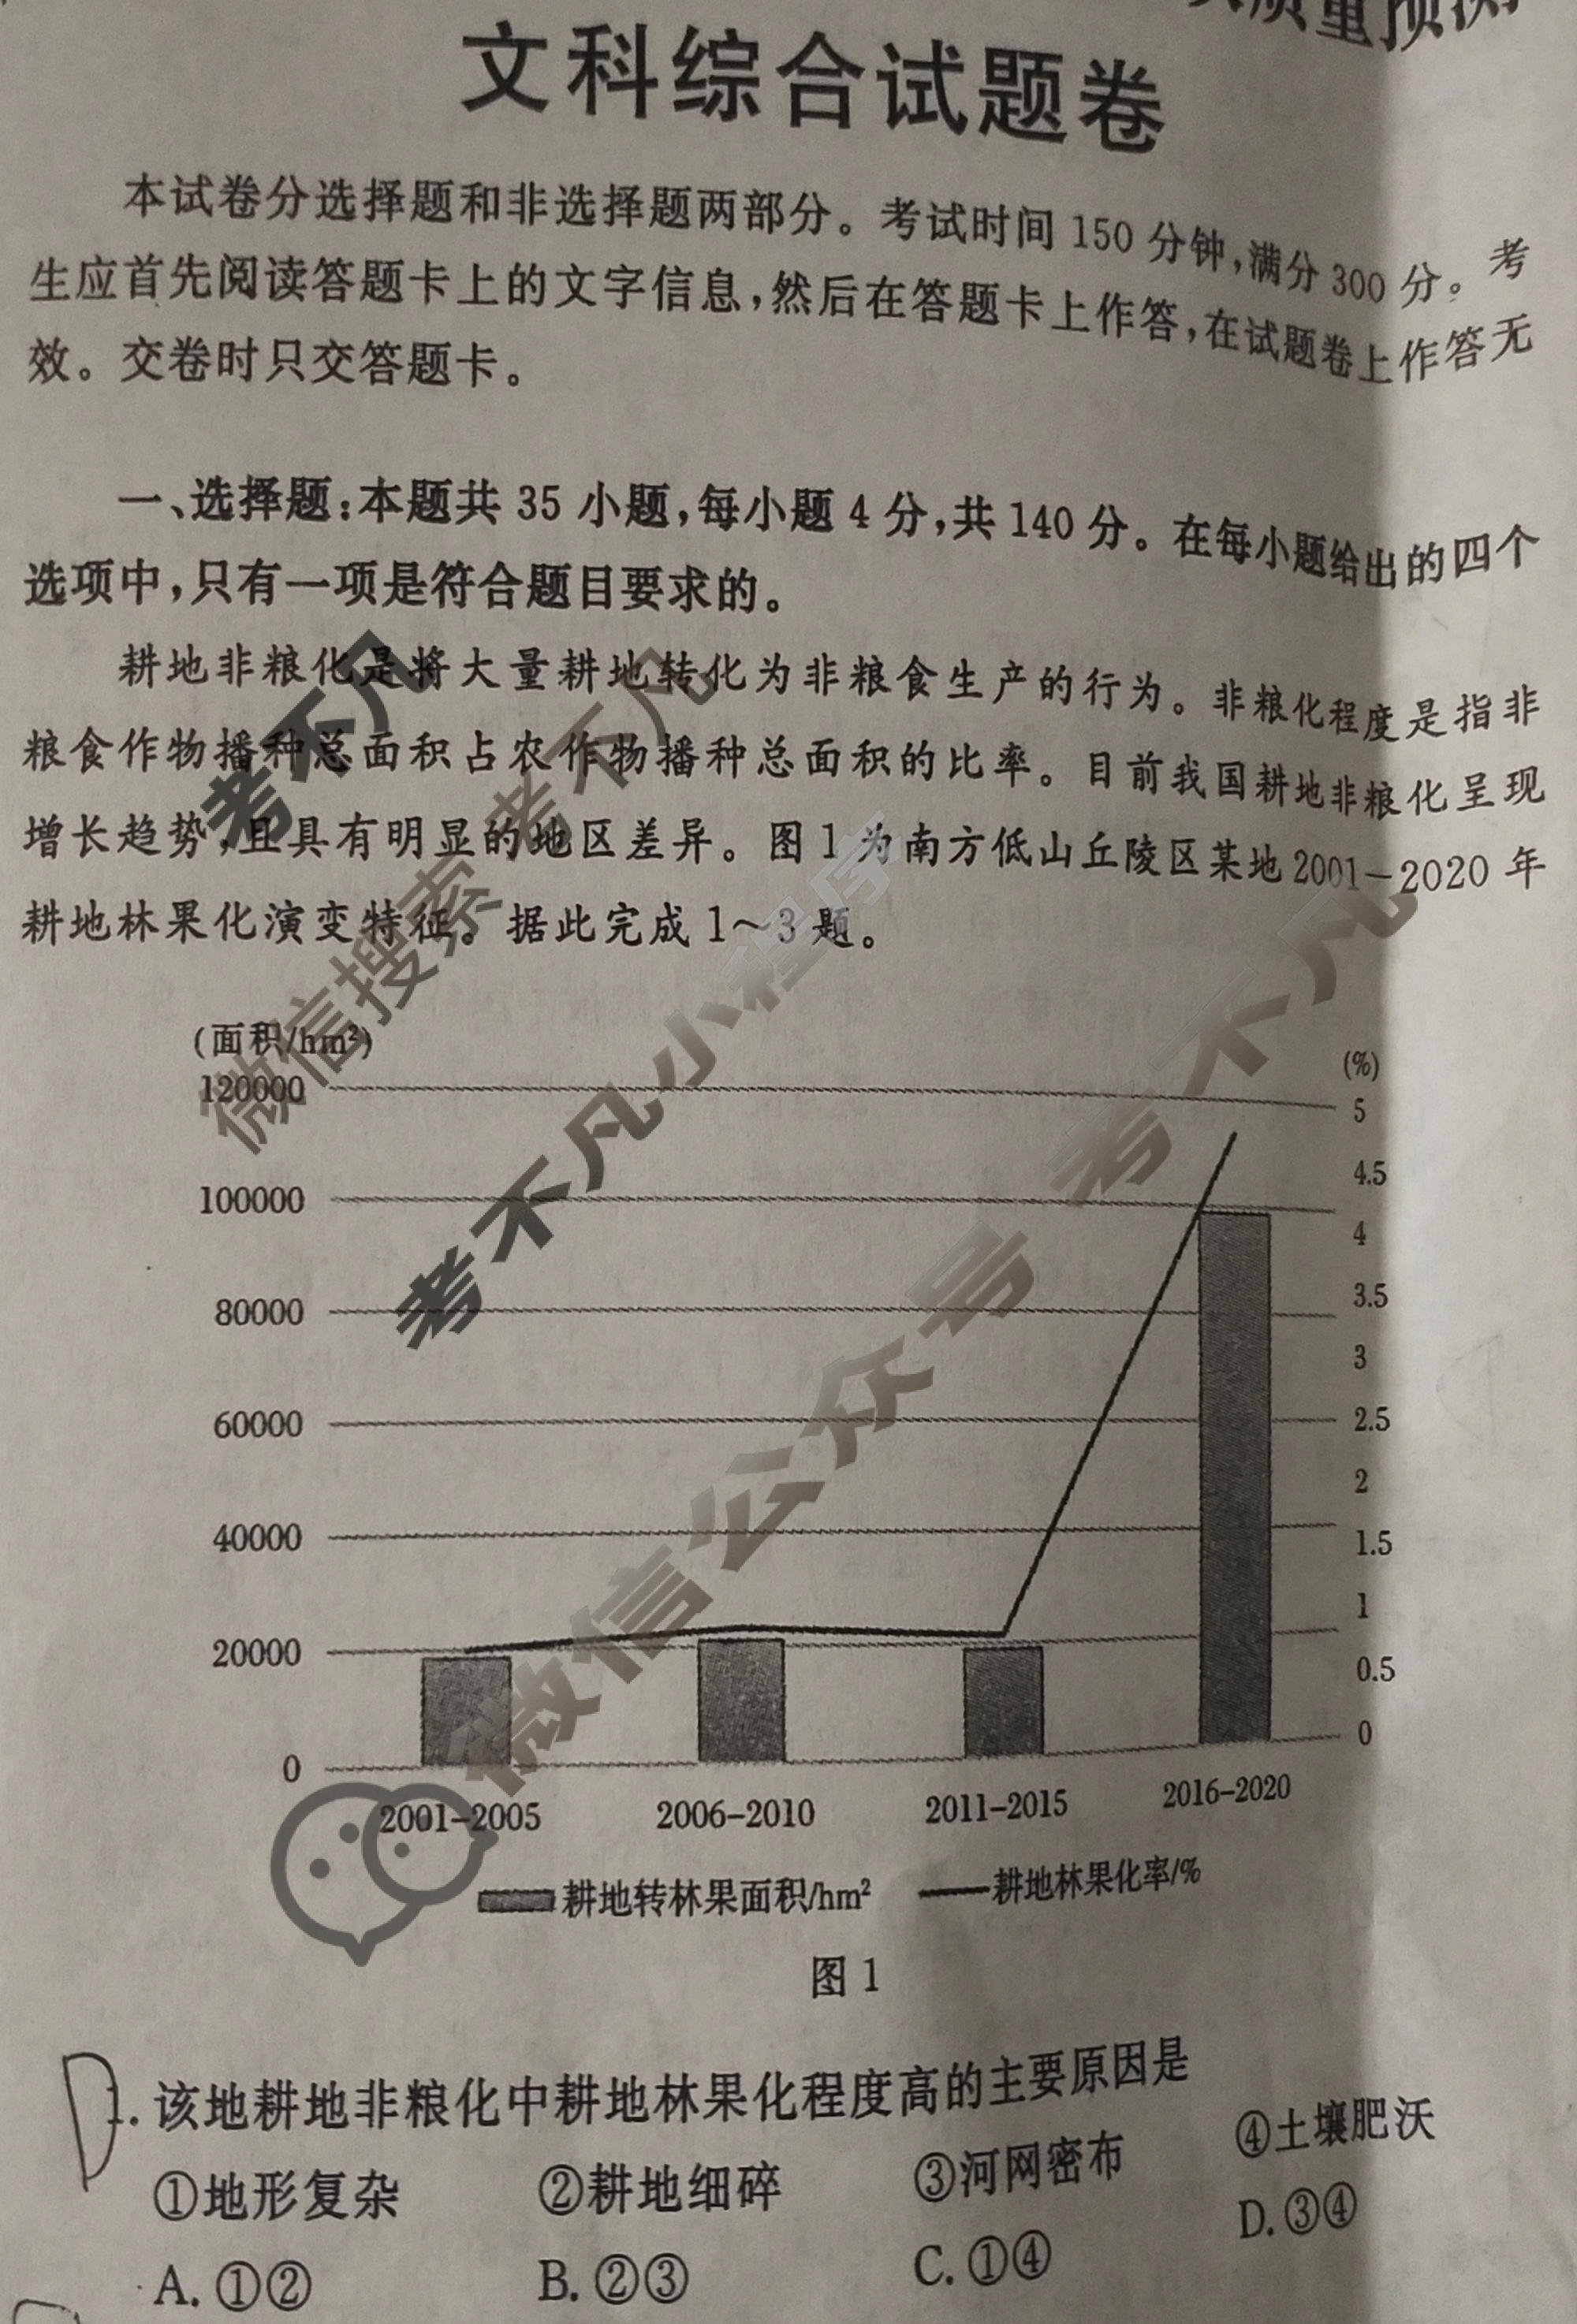 质量预测
文科综合试题卷
本试卷分选择题和非选择题两部分。考试时间 150 分钟,满分 300 分。考
生应首先阅读答题卡上的文字信息,然后在答题卡上作答,在试题卷上作答无
效。交卷时只交答题卡。
一、选择题:本题共 35 小题,每小题 4 分,共 140 分。在每小题给出的四个
选项中,只有一项是符合题目要求的。
耕地非粮化是将大量耕地转化为非粮食生产的行为。非粮化程度是指非
粮食作物播种总面积占农作物播种总面积的比率。目前我国耕地非粮化呈现
增长趋势,且具有明显的地区差异。图 1 为南方低山丘陵区某地 2001-2020 年
耕地林果化演变特征。据此完成 1~3 题。
考不凡
微信搜索 考不凡
考不凡小程序
微信公众号 考不凡
(面积/hm²)
(%)
120000
5
4.5
100000
4
80000
3.5
3
60000
2.5
2
40000
1.5
1
20000
0.5
0
0
2001-2005 2006-2010 2011-2015 2016-2020
耕地转林果面积/hm² 耕地林果化率/%
图 1
D
1. 该地耕地非粮化中耕地林果化程度高的主要原因是
①地形复杂 ②耕地细碎 ③河网密布 ④土壤肥沃
A. ①② B. ②③ C. ①④ D. ③④